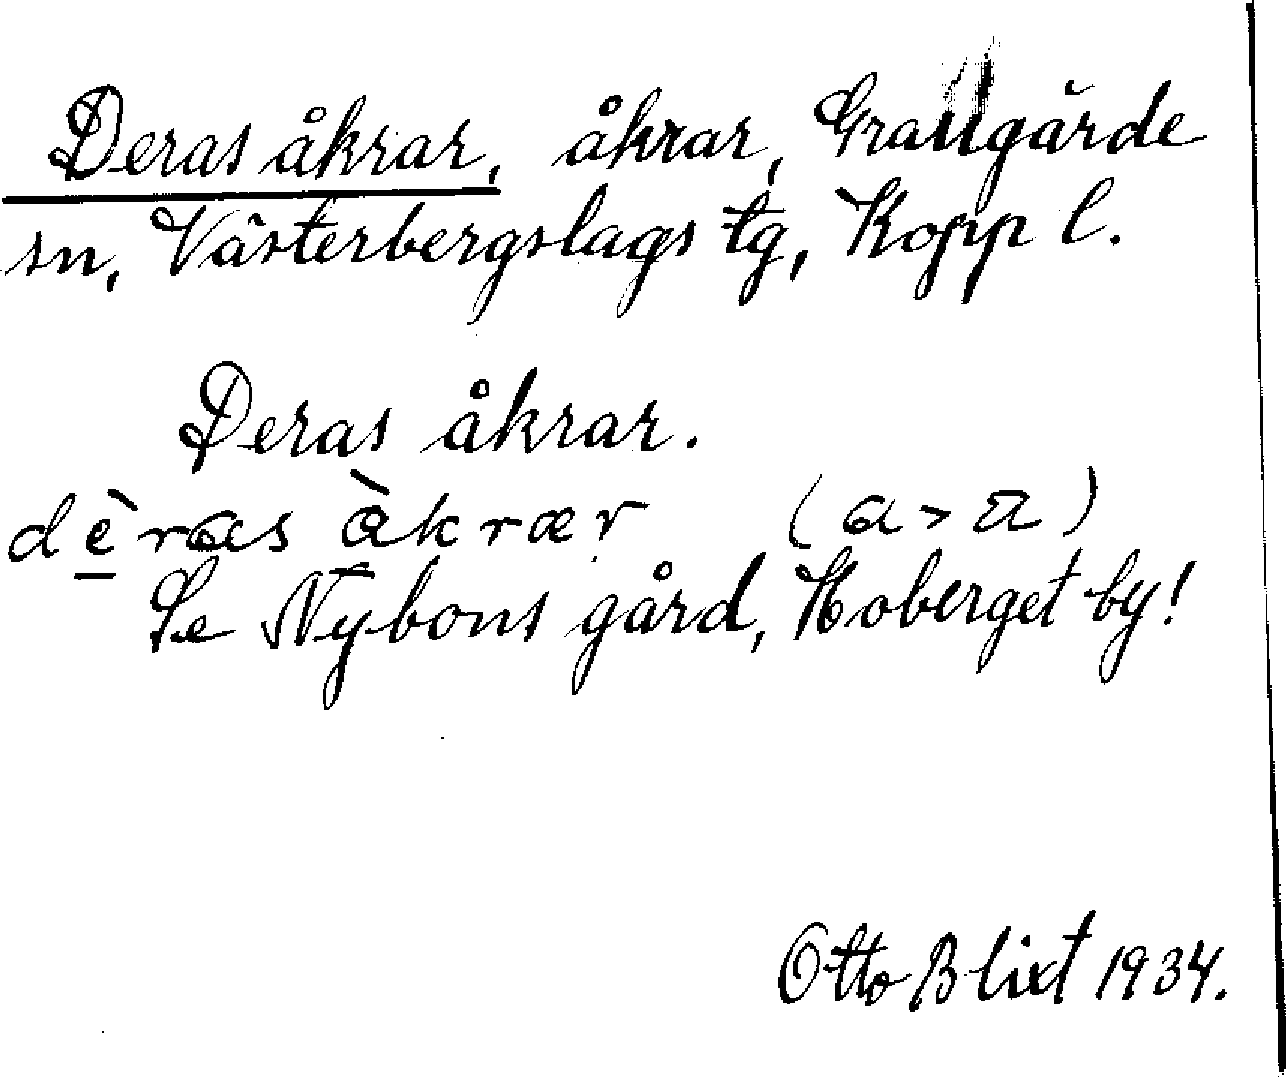 Deras åkrar, åkrar, Grangärde
sn, Västerbergslags tg, Kopp l.
Deras åkrar.
dèras àkrær (a > a)
Se Nybons gård, Hoberget by!
Otto Blixt 1934.